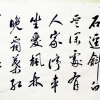 石逕斜白
雲深處有
人家停車
坐愛楓林
晚霜葉紅